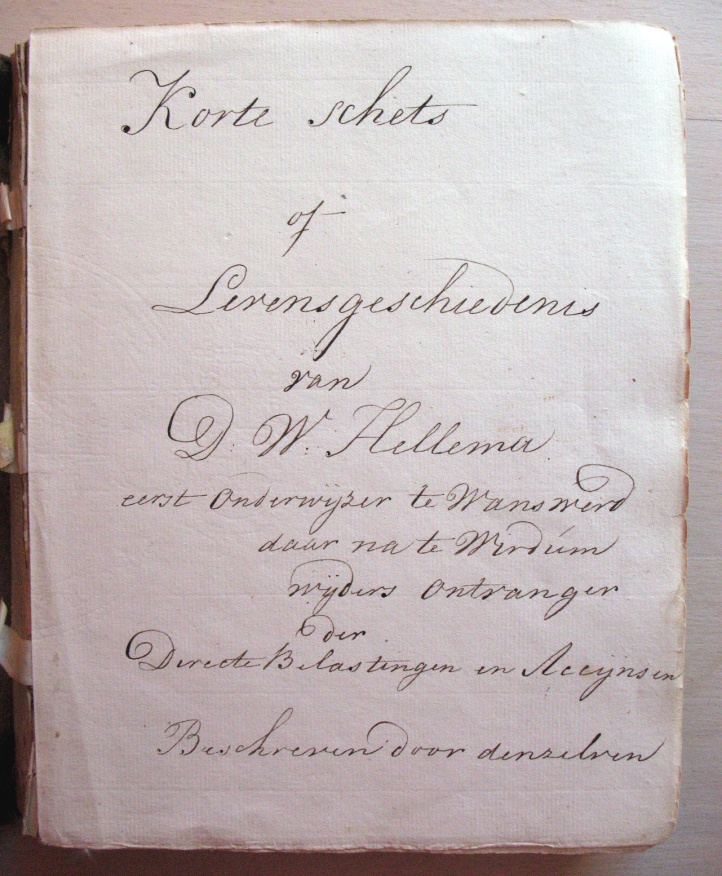 Korte schets
of
Levensgeschiedenis
van
D. W. Hellema
eerst Onderwijzer te Wanswerd
daar na te Wirdúm
wijders Ontvanger
der
Directe Belastingen en Accijnsen
Beschreven door denzelven